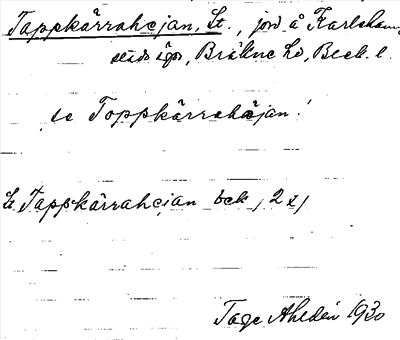 Tappkärrahejan, St., jord å Karlshamns
stads ägor, Bräkne hd, Blek. l.
se Toppkärrahöjan!
St. Tappkärrahejan bek / 2 x /
Tage Ahldén 1930